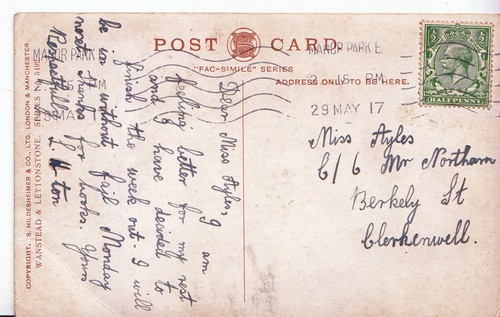 POST CARD.
"FAC-SIMILE" SERIES
ADDRESS ONLY TO BE HERE.
MANOR PARK
MANOR PARK E.
2 15 PM
29 MAY 17
HALFPENNY
Dear Miss Ayles, I am
feeling better for my rest
and I have decided to
finish the week out. I will
be in without fail Monday
next thanks for works. Yours
Respectfully
Miss Ayles
C/6 Mr Northam
Berkely St
Clerkenwell.
COPYRIGHT. S. HILDESHEIMER & CO., LTD. LONDON & MANCHESTER.
WANSTEAD & LEYTONSTONE. SERIES NO.